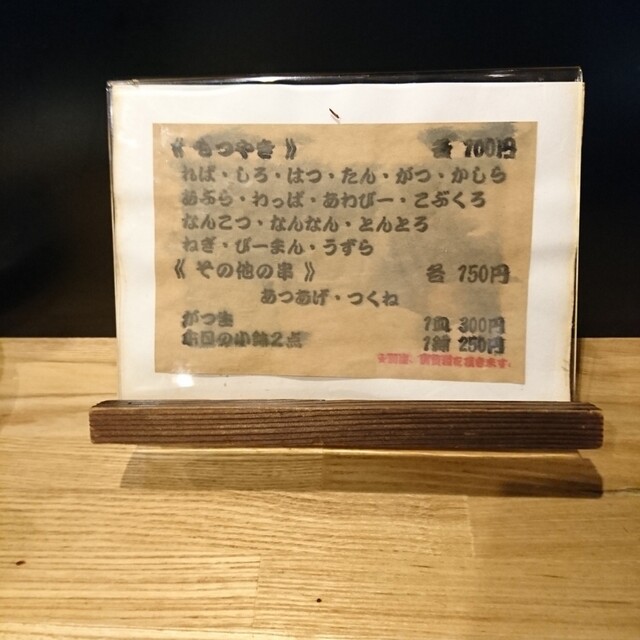 《 もつやき 》 各 100円
れば・しろ・はつ・たん・がつ・かしら
あぶら・わっぱ・あわびー・こぶくろ
なんこつ・なんなん・とんとろ
ねぎ・ぴーまん・うずら
《 その他の串 》 各 150円
あつあげ・つくね
がつ生 1皿 300円
本日の小鉢2点 1鉢 250円
頂きます。